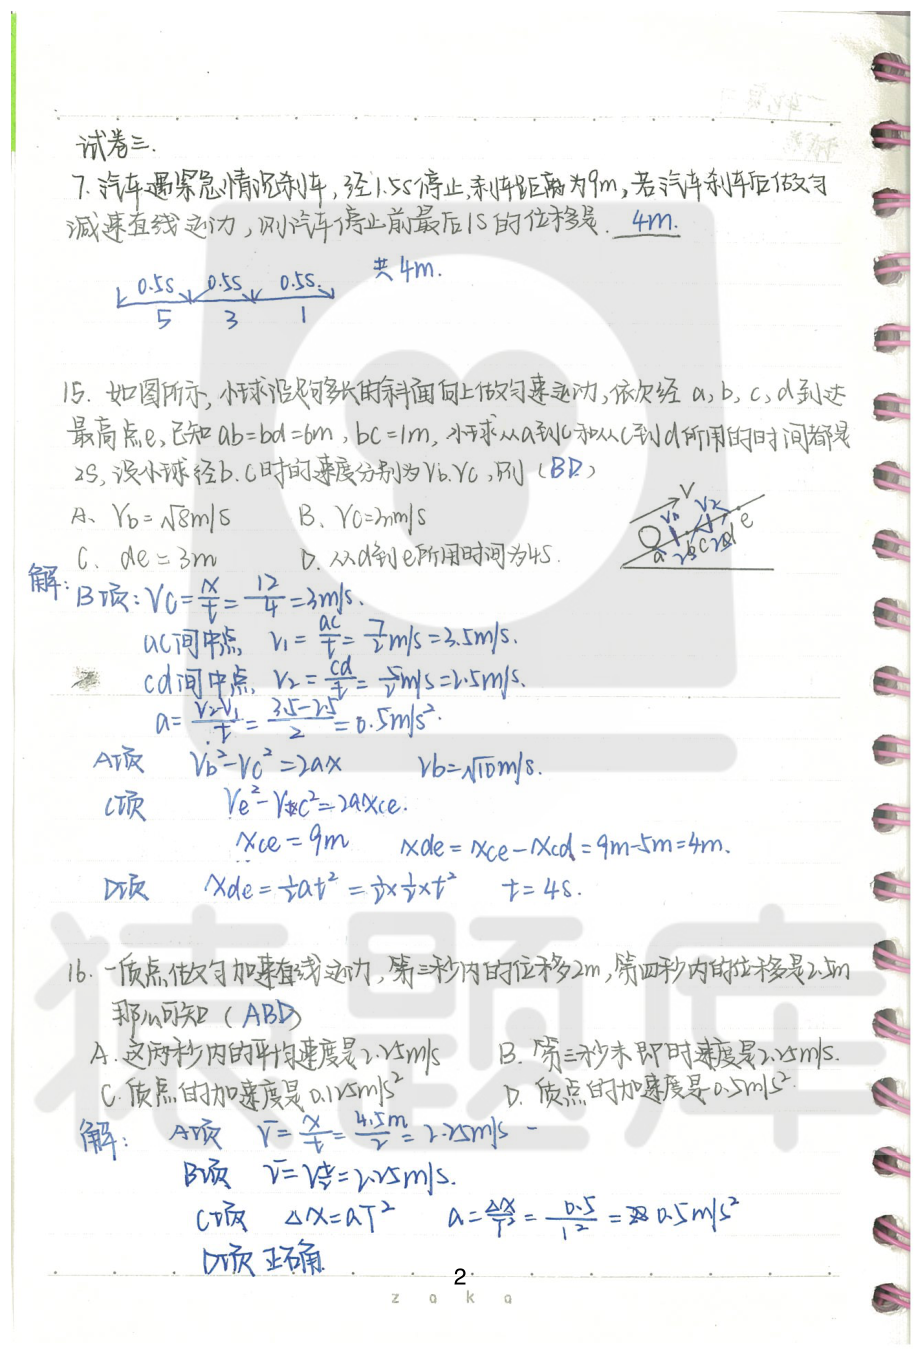 试卷三.
7. 汽车遇紧急情况刹车,经1.5s停止,刹车距离为9m,若汽车刹车后做匀
减速直线运动,则汽车停止前最后1S的位移是. 4m.
共4m.
0.5s 0.5s 0.5s.
5 3 1
15. 如图所示,小球沿足够长的斜面向上做匀速运动,依次经 a,b,c,d到达
最高点e,已知ab=bd=6m,bc=1m,小球从a到c和从c到d所用的时间都是
2S,设小球经b.c时的速度分别为Vb.Vc,则(BD)
A、Vb=√8m/s B、VC=3m/s
C. de=3m D.从d到e所用时间为4s.
V V1 V2 a b c d e 2s 2s
解: B项:VC=x/t=12/4=3m/s.
ac间中点, V1=ac/t=7/2m/s=3.5m/s.
cd间中点, V2=cd/t=5/2m/s=2.5m/s.
a=V2-V1/t=3.5-2.5/2=0.5m/s².
A项 Vb²-Vc²=2ax Vb=√10m/s.
C项 Ve²-Vc²=2axce.
xce=9m xde=xce-xcd=9m-5m=4m.
D项 xde=½at²=½×½×t² t=4s.
16. 一质点做匀加速直线运动,第三秒内的位移2m,第四秒内的位移是2.5m
那么可知(ABD)
A.这两秒内的平均速度是2.25m/s B.第三秒末即时速度是2.25m/s.
C.质点的加速度是0.125m/s² D.质点的加速度是0.5m/s²
解: A项 V̄=x/t=4.5m/2=2.25m/s
B项 V̄=Vt/2=2.25m/s.
C项 △x=aT² a=△x/T²=0.5/1²=0.5m/s²
D项 正确.
2
zaka
猿题库